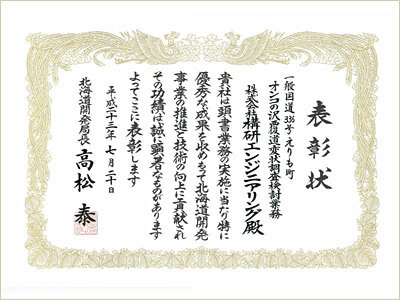 表彰状
一般国道336号えりも町
オンコの沢覆道変状調査検討業務
株式会社構研エンジニアリング殿
貴社は頭書業務の実施に当たり特に
優秀な成果を収めもって北海道開発
事業の推進と技術の向上に貢献され
その功績は誠に顕著なものがあります
よってここに表彰します
平成二十三年七月二十日
北海道開発局長 高松泰